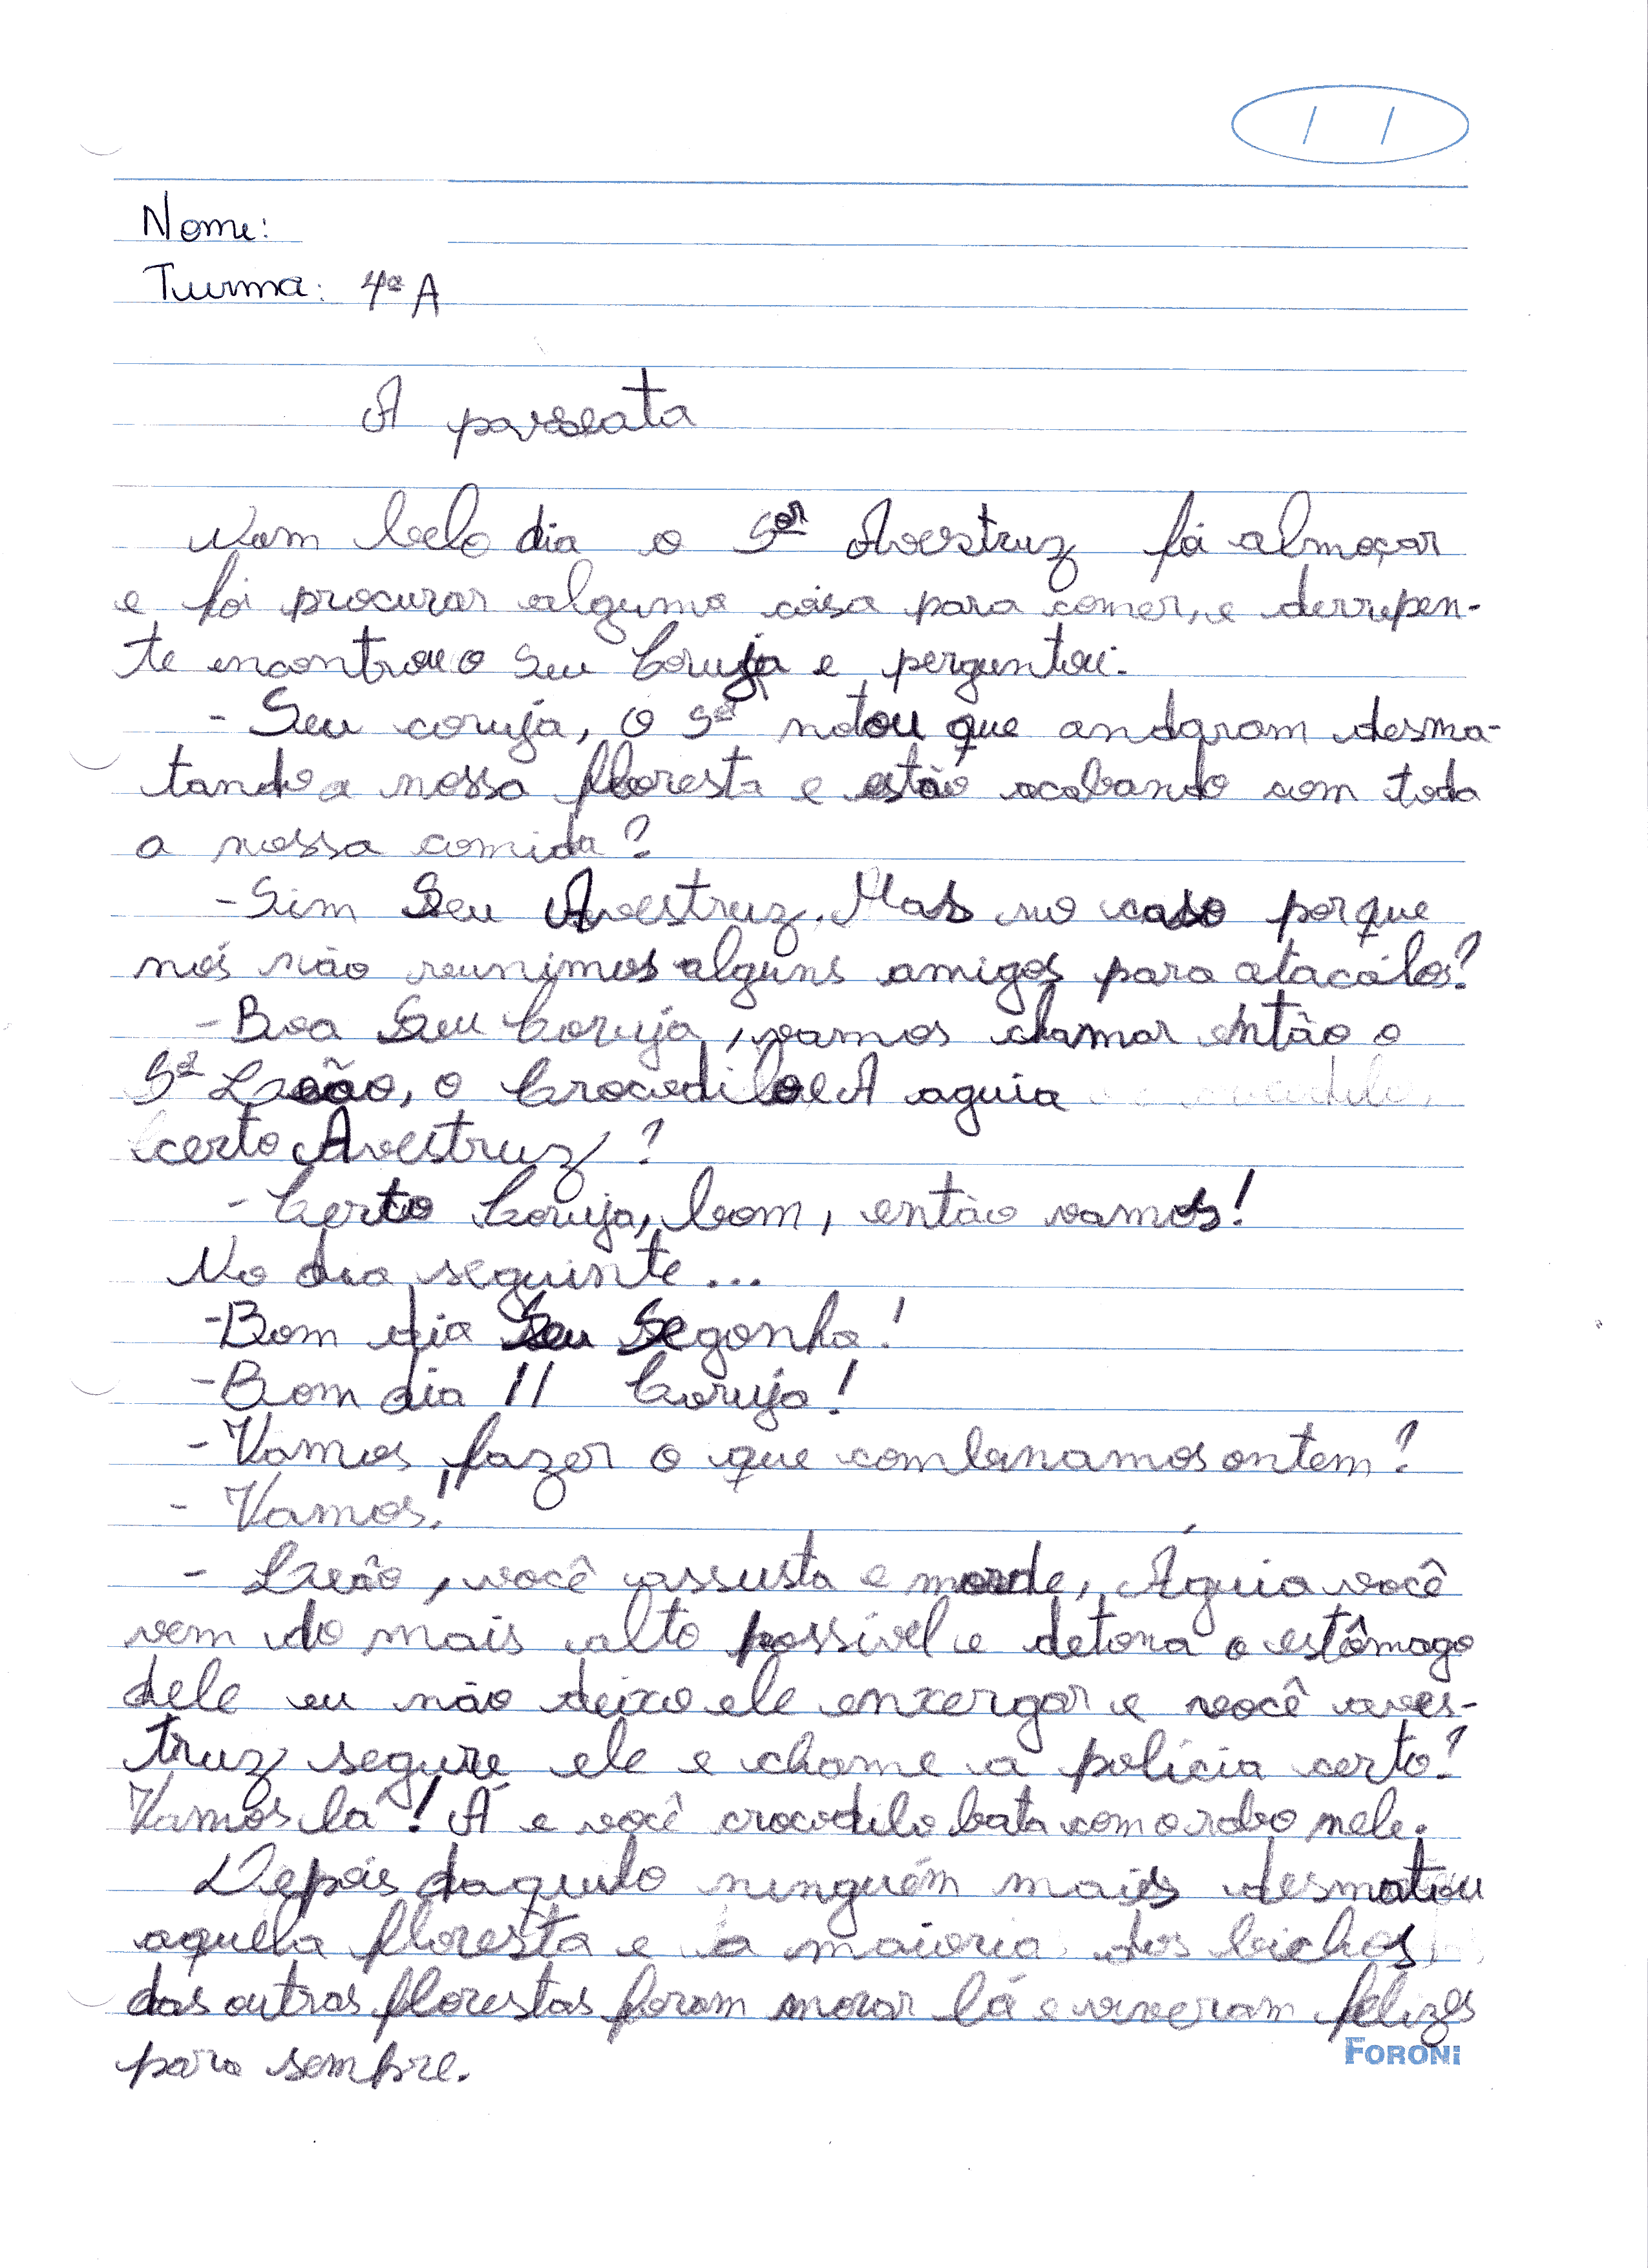 / /
Nome:
Turma: 4ª A
A passeata
Num belo dia o Sor Avestruz foi almoçar
e foi procurar alguma coisa para comer, e derrepen-
te encontrou o Seu Coruja e perguntou:
- Seu coruja, o Sor notou que andaram desma-
tando a nossa floresta e estão acabando com toda
a nossa comida?
- Sim Seu Avestruz. Mas no caso porque
nós não reunimos alguns amigos para atacálos?
- Boa Seu Coruja, vamos chamar então o
Sr Leão, o Crocodilo e A aguia
certo Avestruz?
- Certo Coruja, bom, então vamos!
No dia seguinte...
- Bom dia Seu Segonha!
- Bom dia 11 Coruja!
- Vamos fazer o que combinamos ontem?
- Vamos!
- Leão, você assusta e morde, Águia você
vem do mais alto possível e detona o estômago
dele eu não deixo ele enxergar e você aves-
truz segure ele e chame a polícia certo?
Vamos lá! Á e você crocodilo bata com o rabo nele.
Depois daquilo ninguém mais desmatou
aquela floresta e a maioria dos bichos
das outras florestas foram morar lá e viveram felizes
para sempre.
FORONI